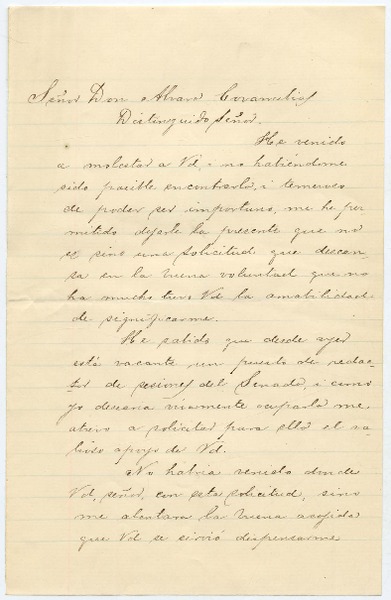 Señor Don Alvaro Covarrubias
Distinguido Señor.
He venido
a molestar a Vd, i no habiéndome
sido posible encontrarlo, i temeroso
de poder ser importuno, me he per
mitido dejarle la presente que no
es sino una solicitud que descan-
sa en la buena voluntad que no
ha mucho tuvo Vd la amabilidad
de significarme.
He sabido que desde ayer
está vacante un puesto de redac-
tor de sesiones del Senado, i como
yo desearia vivamente ocuparlo me
atrevo a solicitar para ello el va
lioso apoyo de Vd.
No habria venido donde
Vd, señor, con esta solicitud, sino
me alentara la buena acojida
que Vd se sirvió dispensarme